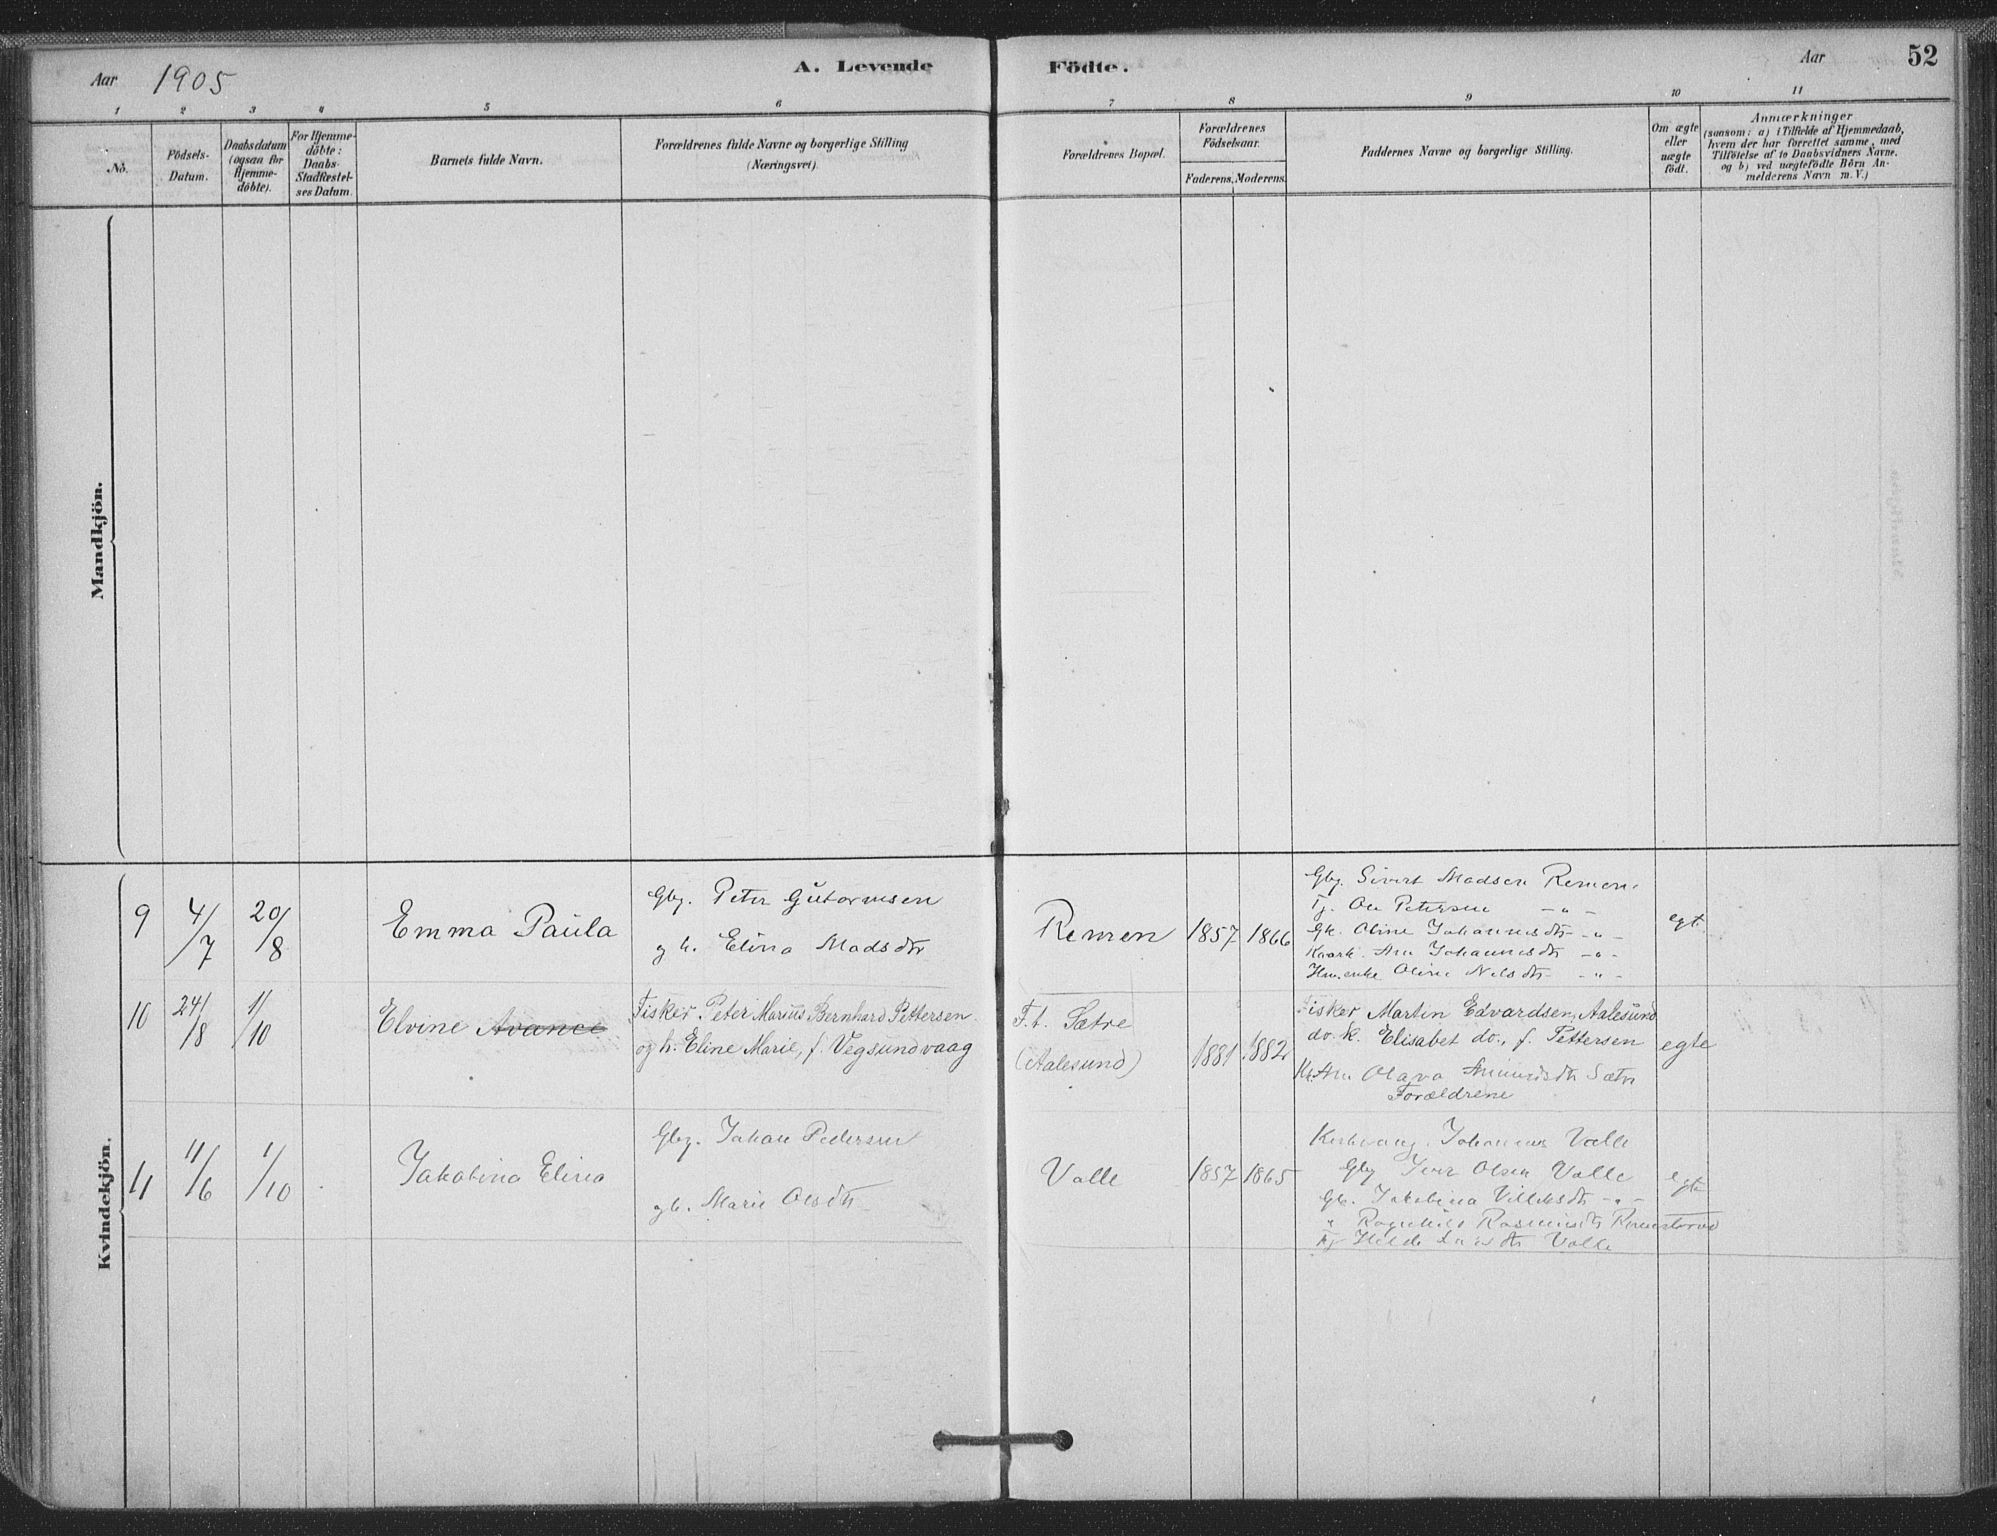 Aar 1905
A. Levende Födte.
Aar
52
1 2 3 4 5 6 7 8 9 10 11
No.
Födsels-Datum.
Daabsdatum (ogsaa for Hjemme-döbte).
For Hjemme-döbte: Daabs-Stadfæstel-ses Datum.
Barnets fulde Navn.
Forældrenes fulde Navne og borgerlige Stilling (Næringsvei).
Forældrenes Bopæl.
Forældrenes Födselsaar.
Faderens. Moderens.
Faddernes Navne og borgerlige Stilling.
Om ægte eller uægte födt.
Anmærkninger
(saasom: a) i Tilfælde af Hjemmedaab,
hvem der har forrettet samme, med
Tilföielse af to Daabsvidners Navne.
og b) ved uægtefödte Börn An-
melderens Navn m. V.)
Mandkjön.
Kvindekjön.
9 4/7 20/8 Emma Paula
Gbg. Peter Gutormsen
g h. Elina Madsdtr
Remen 1857 1866
Gbg. Sivert Madsen Remen.
Tj. Ole Petersen -"-
Gk. Oline Johannesdtr -"-
Ane Johannesdtr -"-
Oline Nilsdtr -"-
egt
10 24/8 1/10 Elvine Avance
Fisker Peter Marius Bernhard Pettersen
og h. Eline Marie, f. Vegsundvaag
F. t. Sætre
(Aalesund)
1881 1882
Fisker Martin Edvardsen, Aalesund
do. k. Elisabet do., f. Pettersen
Olava Amundsdtr Sætre
Forældrene
egte
11 11/6 1/10 Jakobina Elina
Gbg. Johan Pedersen
g h. Marie Olsdtr
Valle 1857 1865
Johannes Valle
Gbg Iver Olsen Valle
Gk. Jakobina -"-
" Ragnhild Rasmusdtr
Tj Valle
egte